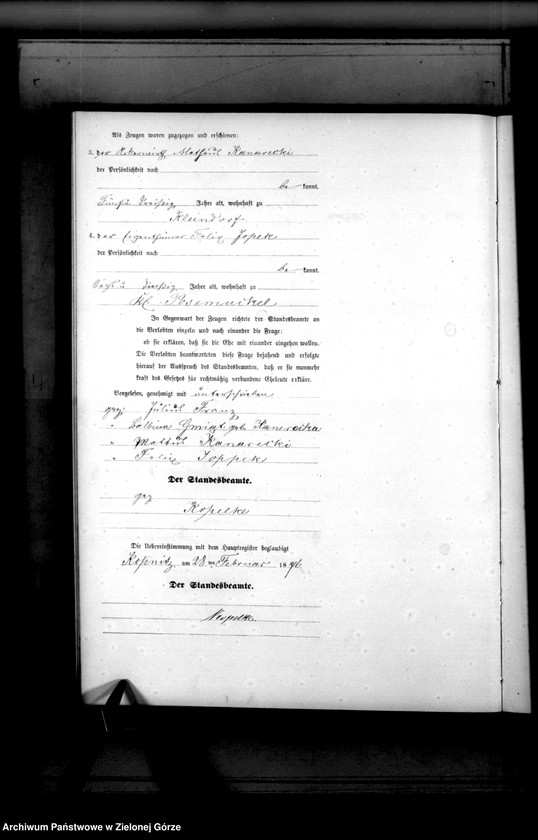 Als Zeugen waren zugezogen und erschienen:
3. der Ackerwirth Mathäus Kanarecki
der Persönlichkeit nach
be kannt,
fünf u dreißig Jahre alt, wohnhaft zu
Kleindorf
4. der Eigenthümer Felix Jopek
der Persönlichkeit nach
be kannt,
sechs u dreißig Jahre alt, wohnhaft zu
Kl. Posemukel
In Gegenwart der Zeugen richtete der Standesbeamte an
die Verlobten einzeln und nach einander die Frage:
ob sie erklären, daß sie die Ehe mit einander eingehen wollen.
Die Verlobten beantworteten diese Frage bejahend und erfolgte
hierauf der Ausspruch des Standesbeamten, daß er sie nunmehr
kraft des Gesetzes für rechtmäßig verbundene Eheleute erkläre.
Vorgelesen, genehmigt und unterschrieben
gez: Julius Franz
" Balbina geb
" Kanarecki
" Felix Joppek
Der Standesbeamte.
gez
Kopelke
Die Uebereinstimmung mit dem Hauptregister beglaubigt
Köpnitz am 28ten Februar 1896
Der Standesbeamte.
Kopelke.
Archiwum Państwowe w Zielonej Górze